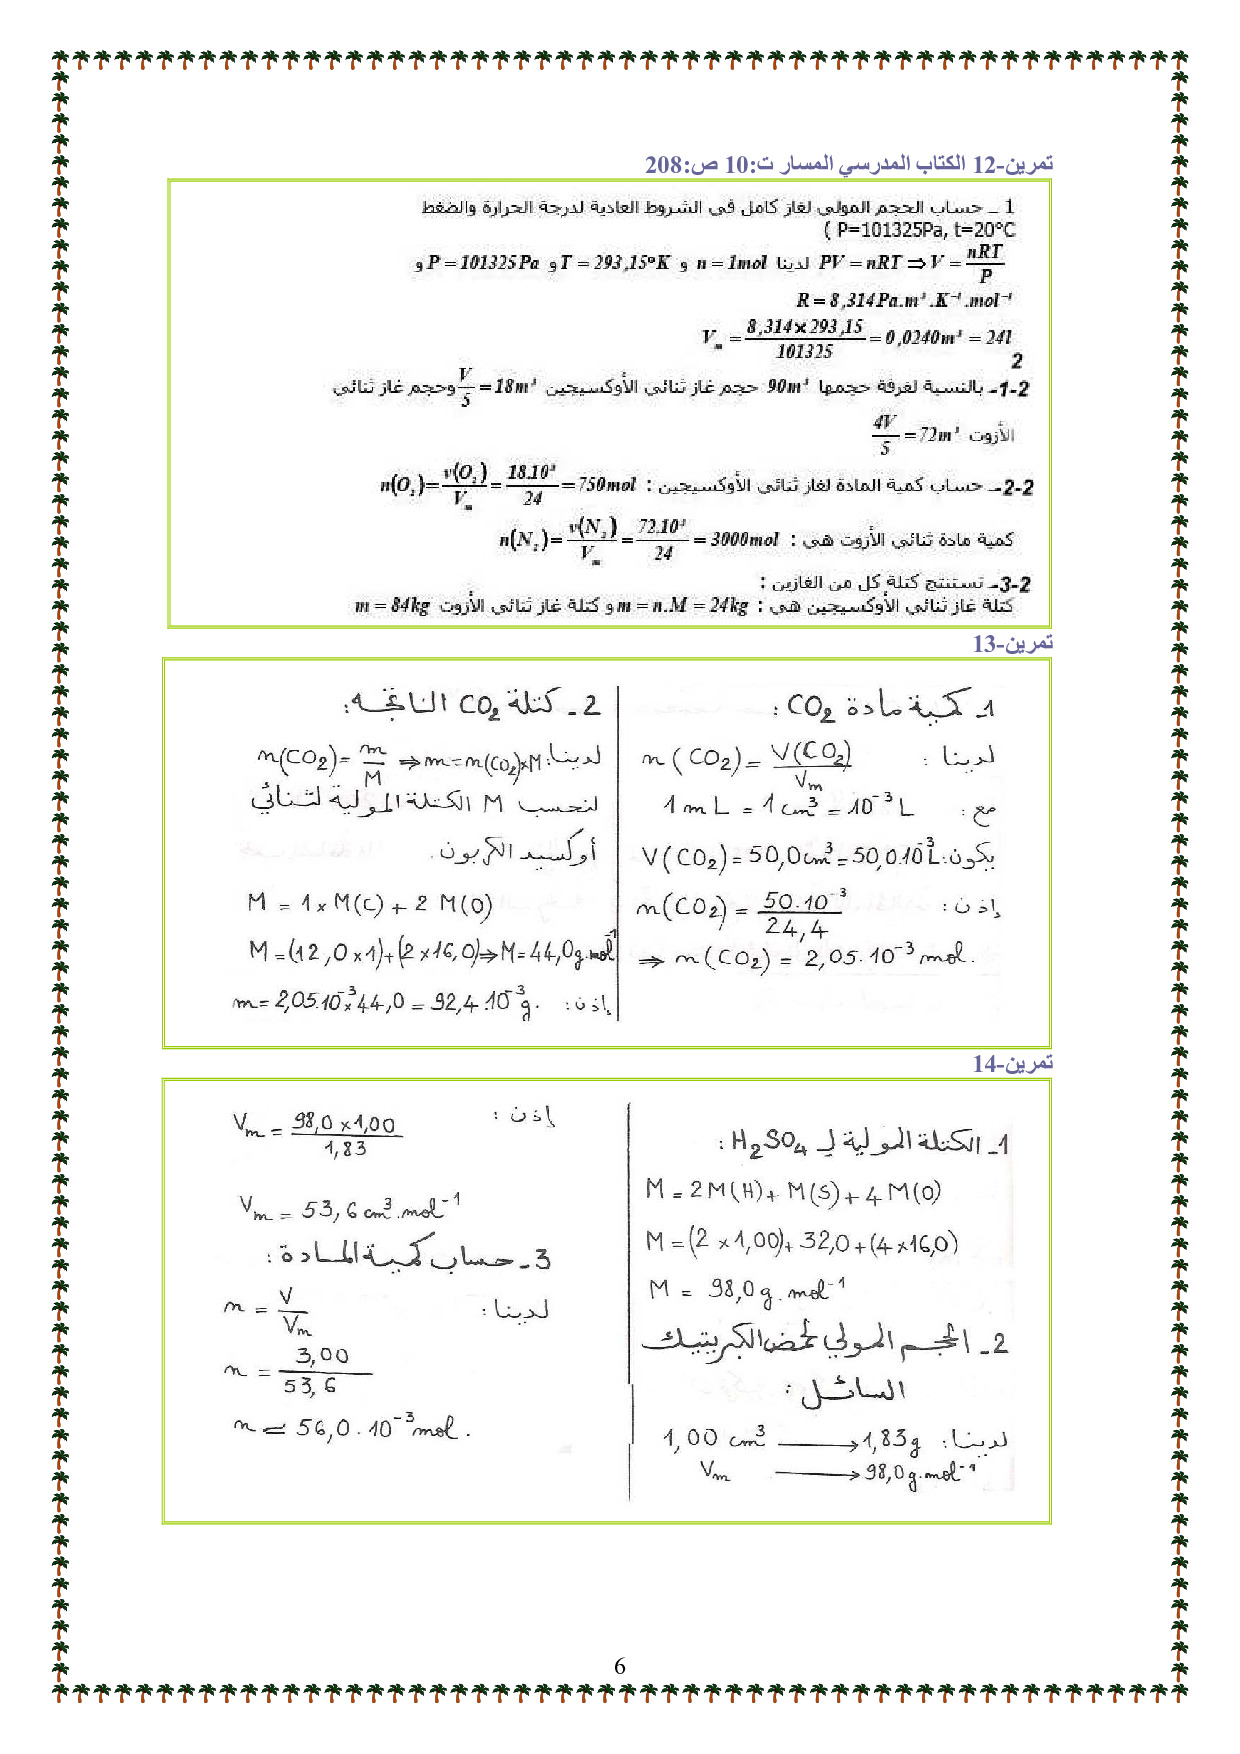 تمرين-12 الكتاب المدرسي المسار ت:10 ص:208
1 _ حساب الحجم المولي لغاز كامل في الشروط العادية لدرجة الحرارة والضغط
( P=101325Pa, t=20°C
PV = nRT ⇒ V = nRT/P لدينا n = 1mol و T = 293,15°K و P = 101325Pa و
R = 8,314Pa.m³.K⁻¹.mol⁻¹
Vₘ = 8,314×293,15/101325 = 0,0240m³ = 24l
2
2-1- بالنسبة لغرفة حجمها 90m³ حجم غاز ثنائي الأوكسيجين V/5 = 18m³ وحجم غاز ثنائي
الأزوت 4V/5 = 72m³
2-2- حساب كمية المادة لغاز ثنائي الأوكسيجين : n(O₂)= v(O₂)/Vₘ = 18.10³/24 = 750mol
كمية مادة ثنائي الأزوت هي : n(N₂)= v(N₂)/Vₘ = 72.10³/24 = 3000mol
2-3- نستنتج كتلة كل من الغازين :
كتلة غاز ثنائي الأوكسيجين هي : m = n.M = 24kg و كتلة غاز ثنائي الأزوت m = 84kg
تمرين-13
1_ كمية مادة CO₂ :
لدينا : n(CO₂) = V(CO₂)/Vm
مع : 1mL = 1cm³ = 10⁻³L
يكون: V(CO₂) = 50,0cm³ = 50,0.10⁻³L
إذن : n(CO₂) = 50.10⁻³/24,4
⇒ n(CO₂) = 2,05.10⁻³ mol.
2_ كتلة CO₂ الناتجة :
لدينا: n(CO₂) = m/M ⇒ m = n(CO₂)×M
لنحسب M الكتلة المولية لثنائي
أوكسيد الكربون.
M = 1×M(C) + 2 M(O)
M = (12,0×1)+(2×16,0) ⇒ M = 44,0g.mol⁻¹
إذن : m = 2,05.10⁻³×44,0 = 92,4.10⁻³g.
تمرين-14
1_ الكتلة المولية لـ H₂SO₄ :
M = 2M(H) + M(S) + 4M(O)
M = (2×1,00) + 32,0 + (4×16,0)
M = 98,0g.mol⁻¹
2_ الحجم المولي لحمض الكبريتيك
السائل :
لدينا: 1,00 cm³ ⟶ 1,83g
Vm ⟶ 98,0g.mol⁻¹
إذن : Vm = 98,0×1,00/1,83
Vm = 53,6cm³.mol⁻¹
3_ حساب كمية المادة :
لدينا: n = V/Vm
n = 3,00/53,6
n = 56,0.10⁻³mol.
6